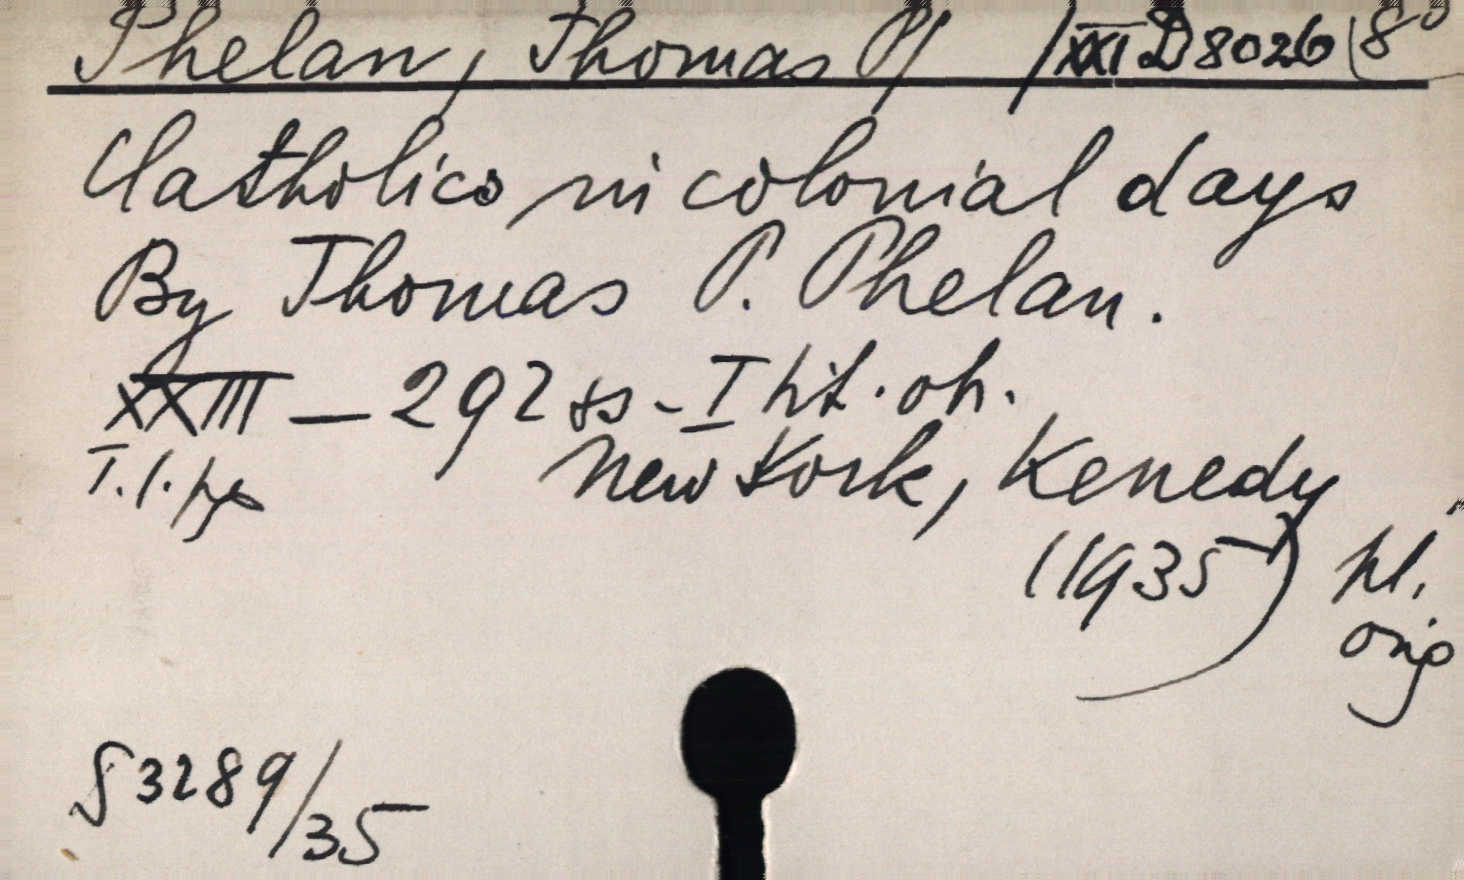 Phelan, Thomas P/ /XXI D 8026 (8°
Catholics in colonial days
By Thomas P. Phelan.
XXIII — 292 ss - I tit. oh.
T.l.
New York, Kenedy
(1935)
pl.
orig
S 3289/35